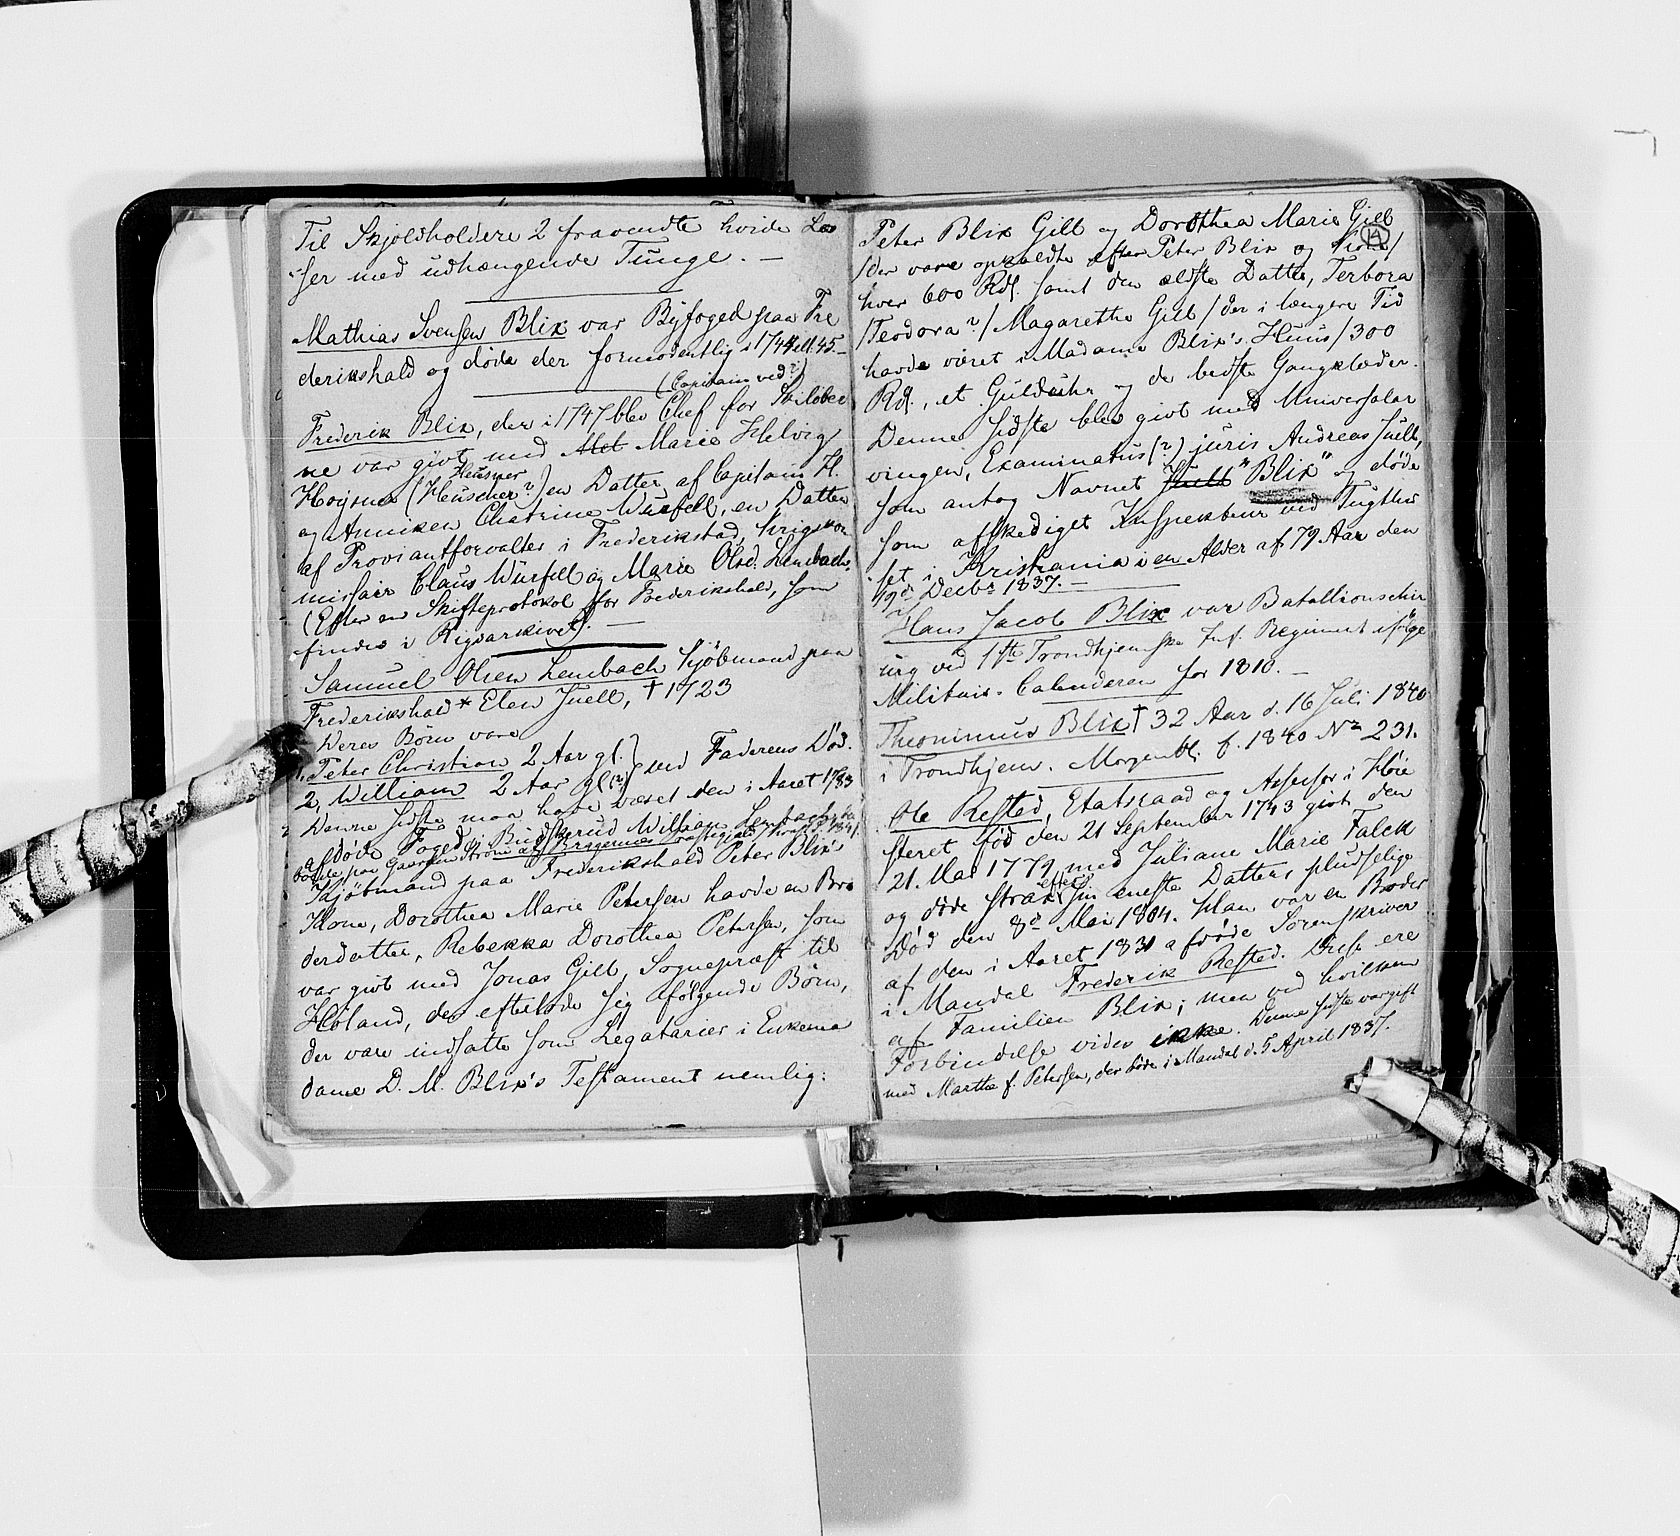 Til Skjoldholdere 2 fravendte hvide Læ
ser med udhængende Tunge. —
Mathias Svensen Blix var Byfoged paa Fre
derikshald og døde der formodentlig i 1744 ell. 45.—
(Capitain ved?)
Frederik Blix, der i 1747 blev Chef for Skiløber
ne var givt med Met Marie Helvig
Heusner
Hoysner (Heuscher?) en Datter af Capitain H.
og Anniken Chatrine Würfell, en Datter
af Proviantforvalter i Frederikstad, Krigskom
missair Claus Würfell og Marie Olsd. Lembach.
(Efter en Skifteprotokol for Frederikshald, som
findes i Rigsarkivet). —
Samuel Olsen Lembach Kjöbmand paa
Frederikshald * Elen Juell, † 1723
Deres Børn vare
1, Peter Christian 2 Aar gl.
2, William 2 Aar gl (?) ved Faderens Død.
Denne sidste maa have været den i Aaret 1783
afdøde Foged i Buskerud William Lembach
Kjöbmand paa Frederikshald Peter Blix's
Kone, Dorothea Marie Petersen havde en Bro
derdatter, Rebekka Dorothea Petersen, som
var givt med Jonas Gill, Sognepræst til
Høland, der efterlode sig følgende Børn,
der vare indsatte som Legatarier i Enkema
dame D. M. Blix's Testament nemlig:
Peter Blix Gill og Dorothea Marie Gill
14
/der vare opkaldte efter Peter Blix og Kone/
hver 600 Rdl. samt den ældste Datter, Terbora
/Teodora?/ Magarethe Gill /der i længere Tid
havde været i Madame Blix's Huus/ 300
Rdl., et Gulduhr og de bedste Gangklæder.
Denne sidste blev givt med Universalar
vingen, Examinatus (?) juris Andreas Juell,
som antog Navnet Juell "Blix" og døde
som afskediget Inspekteur ved Tugthu
set i Kristiania i en Alder af 79 Aar den
19de Decbr 1837. —
Hans Jacob Blix var Bataillionschir
urg ved 1ste Trondhjemske Inf. Regiment ifølge
Militair-Calenderen for 1810. —
Theonimus Blix † 32 Aar d. 16 Juli 1840
i Trondhjem. Morgenbl. f. 1840 No 231.
Ole Rested, Etatsraad og Assessor i Høie
steret født den 21 September 1743 givt den
21. Mai 1779 med Juliane Marie Falck
og døde strax efter sin eneste Datters pludselige
Død den 8de Mai 1804. Han var en Broder
af den i Aaret 1831 afdøde Sørenskriver
i Mandal Frederik Resied. Disse ere
af Familien Blix; men ved hvilken
Forbindelse vides ikke. Denne sidste var gift
med Marthe f. Petersen, der døde i Mandal d. 5 April 1837.